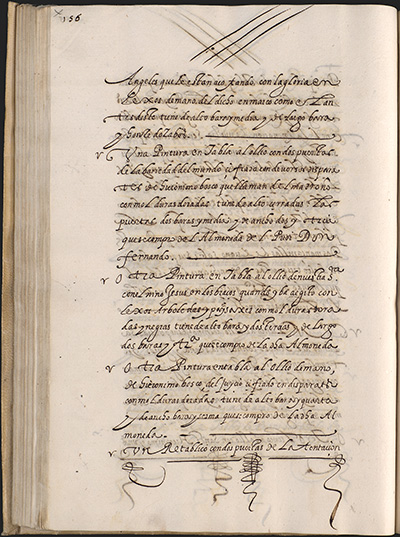 156
Angeles que le estan acostando, con la gloria en
le xos de mano del dicho en marco como el de an
tes deste tiene de alto bara y media y de largo bara
y
Una Pintura en Tabla al ollio con dos puertas
de la bariedad del mundo çifrado con diversos dispara
tes de hieronimo bosco que llaman del madroño
con molduras doradas tiene de alto cerradas Las
puertas dos baras y media y de ancho dos y otcia
que se compro de l Almoneda de l Prior Don
fernando.
Otra Pintura en Tabla al ollio de nuestra sra
con el nino Jesus en los braços quando yba a egito con
le xos Arboledas y paises con molduras dora
das y negras tiene de alto bara y dos terçias y de Largo
dos baras y que se compro de la dha Almoneda
Otra Pintura en tabla al ollio de mano
de hieronimo bosco del Juycio çifrado en disparates
con molduras doradas tiene de alto bara y quarta
y de ancho bara y sesma que se compro de la dha Al
moneda.
Un Retablico con dos puertas de La tentacion